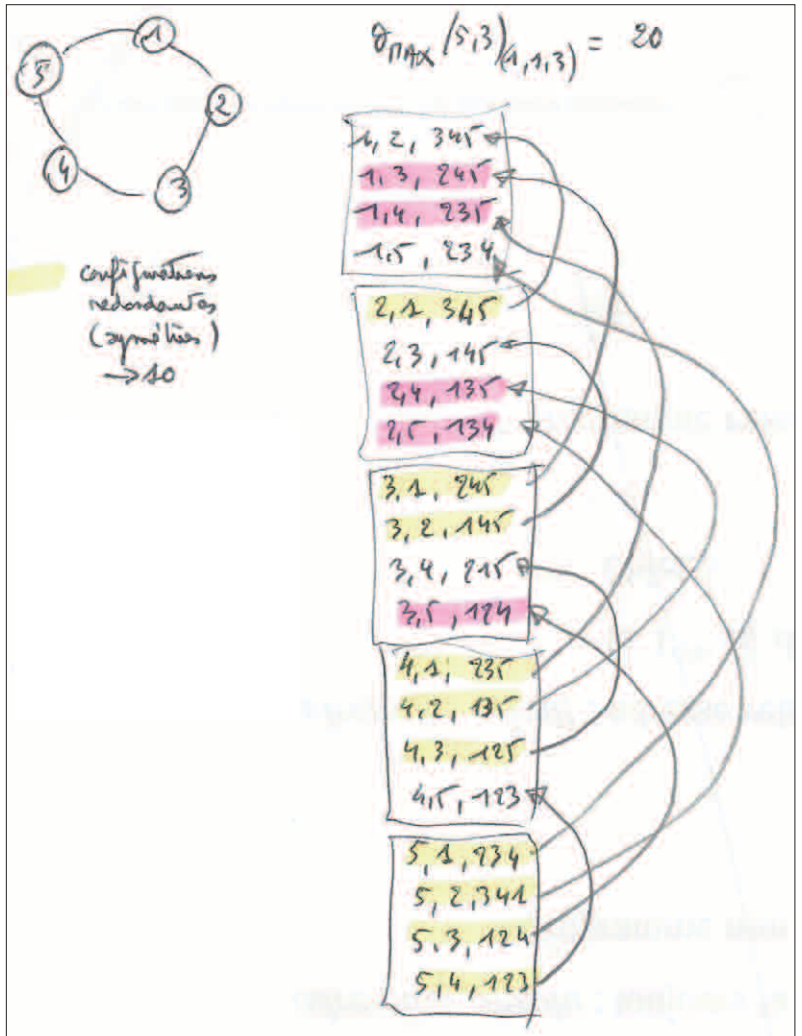 1
2
3
4
5
∂MAX (5,3)(1,1,3) = 20
configurations
redondantes
(symétries)
→ 10
1, 2, 345
1, 3, 245
1, 4, 235
1,5, 234
2, 1, 345
2, 3, 145
2,4, 135
2,5, 134
3, 1, 245
3, 2, 145
3, 4, 215
3,5, 124
4, 1, 235
4, 2, 135
4, 3, 125
4,5, 123
5, 1, 234
5, 2, 341
5, 3, 124
5, 4, 123